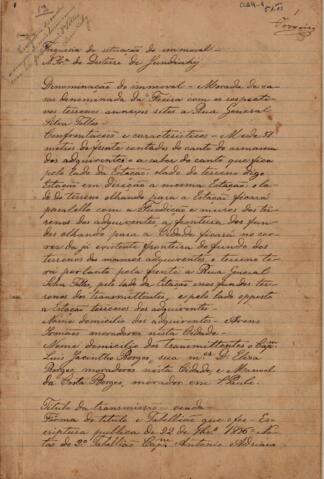 Freguesia da situação do immovel —
N. Sra. do Desterro de Jundiahy
Denominação do immovel — Morada de ca
sas denominada da Feira com os respecti
vos terrenos annexos sitos a Rua General
Silva Telles —
Confrontações e caracteristicos — Mede 58
metros de frente contados do canto do armazem
dos adquirentes — a saber do canto que fica
pelo lado da Estação; o lado do terreno digo
Estação em direcção a mesma Estação; o la
do do terreno olhando para a Estação ficará
parallelo com a Fundição e muros dos ter
renos dos adquirentes, a fronteira dos fun
dos olhando para a Cidade ficará no cor
rer da já existente fronteira do fundo dos
terrenos dos mesmos adquirentes, o terreno te
rá portanto pela frente a Rua General
Silva Telles, pelo lado da Estação e nos fundos ter
renos dos transmittentes, e pelo lado opposto
a Estação terrenos dos adquirentes —
Nome domicilio dos adquirentes — Arens
Irmãos moradores nesta Cidade —
Nome domicilio dos transmittentes o Capm
Luis Jacintho Borges, sua mer D. Elisa
Borges, moradores nesta Cidade e Manoel
da Costa Borges, morador em S. Paulo.
Titulo da transmissão — venda
Forma do titulo e Tabellião que o fez — Es
criptura publica de 22 de 1896 — No
tas do 2º Tabellião Capm Antonio Adriano